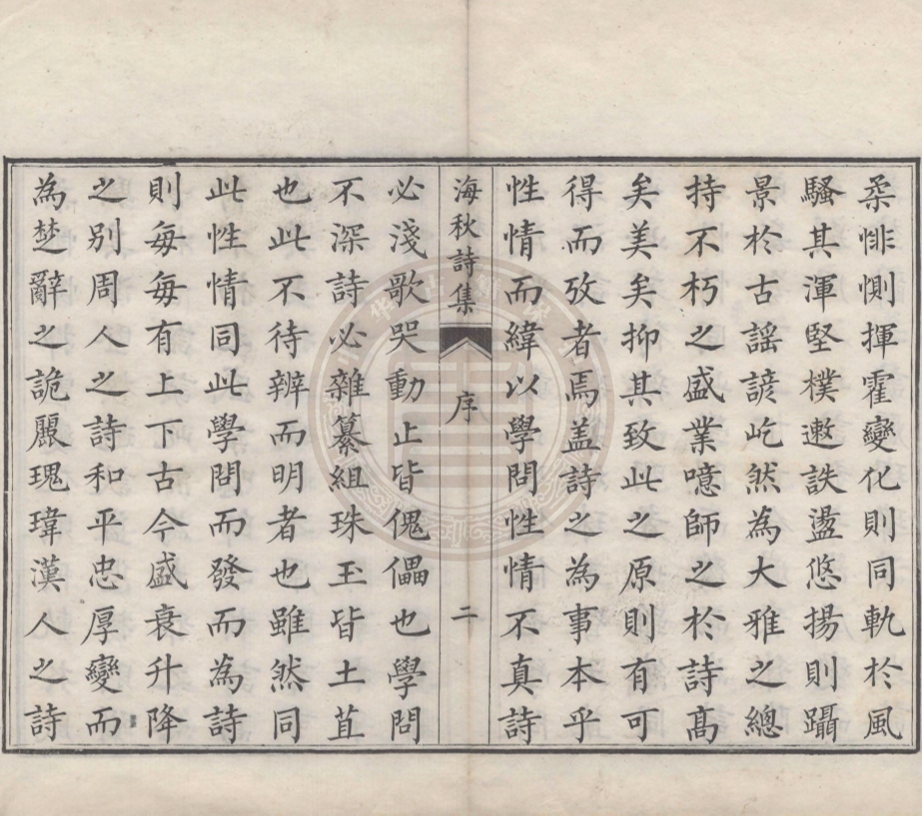 柔悱惻揮霍變化則同軌於風
騷其渾堅樸遬詄盪悠揚則躡
景於古謡諺屹然為大雅之總
持不朽之盛業噫師之於詩髙
矣美矣抑其致此之原則有可
得而攷者焉盖詩之為事本乎
性情而緯以學問性情不真詩
海秋詩集
序
二
必淺歌哭動止皆傀儡也學問
不深詩必雜纂組珠玉皆土苴
也此不待辨而明者也雖然同
此性情同此學問而發而為詩
則每每有上下古今盛衰升降
之別周人之詩和平忠厚變而
為楚辭之詭麗瑰瑋漢人之詩